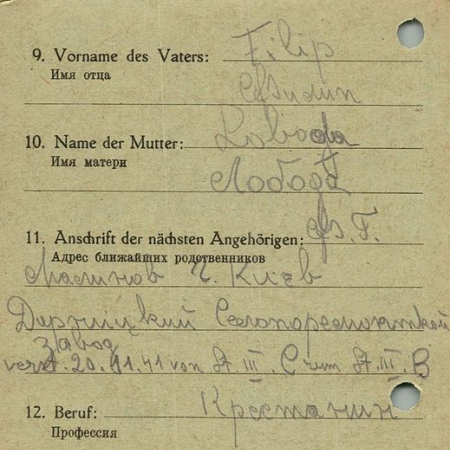 9. Vorname des Vaters: Filip
Имя отца
10. Name der Mutter: Loboda
Имя матери
Лобода
11. Anschrift der nächsten Angehörigen:
Адрес ближайших родственников
г. Киев
завод
verst. 20.11.41 von St. III. C zum St. III. B
12. Beruf: Крестанин
Профессия